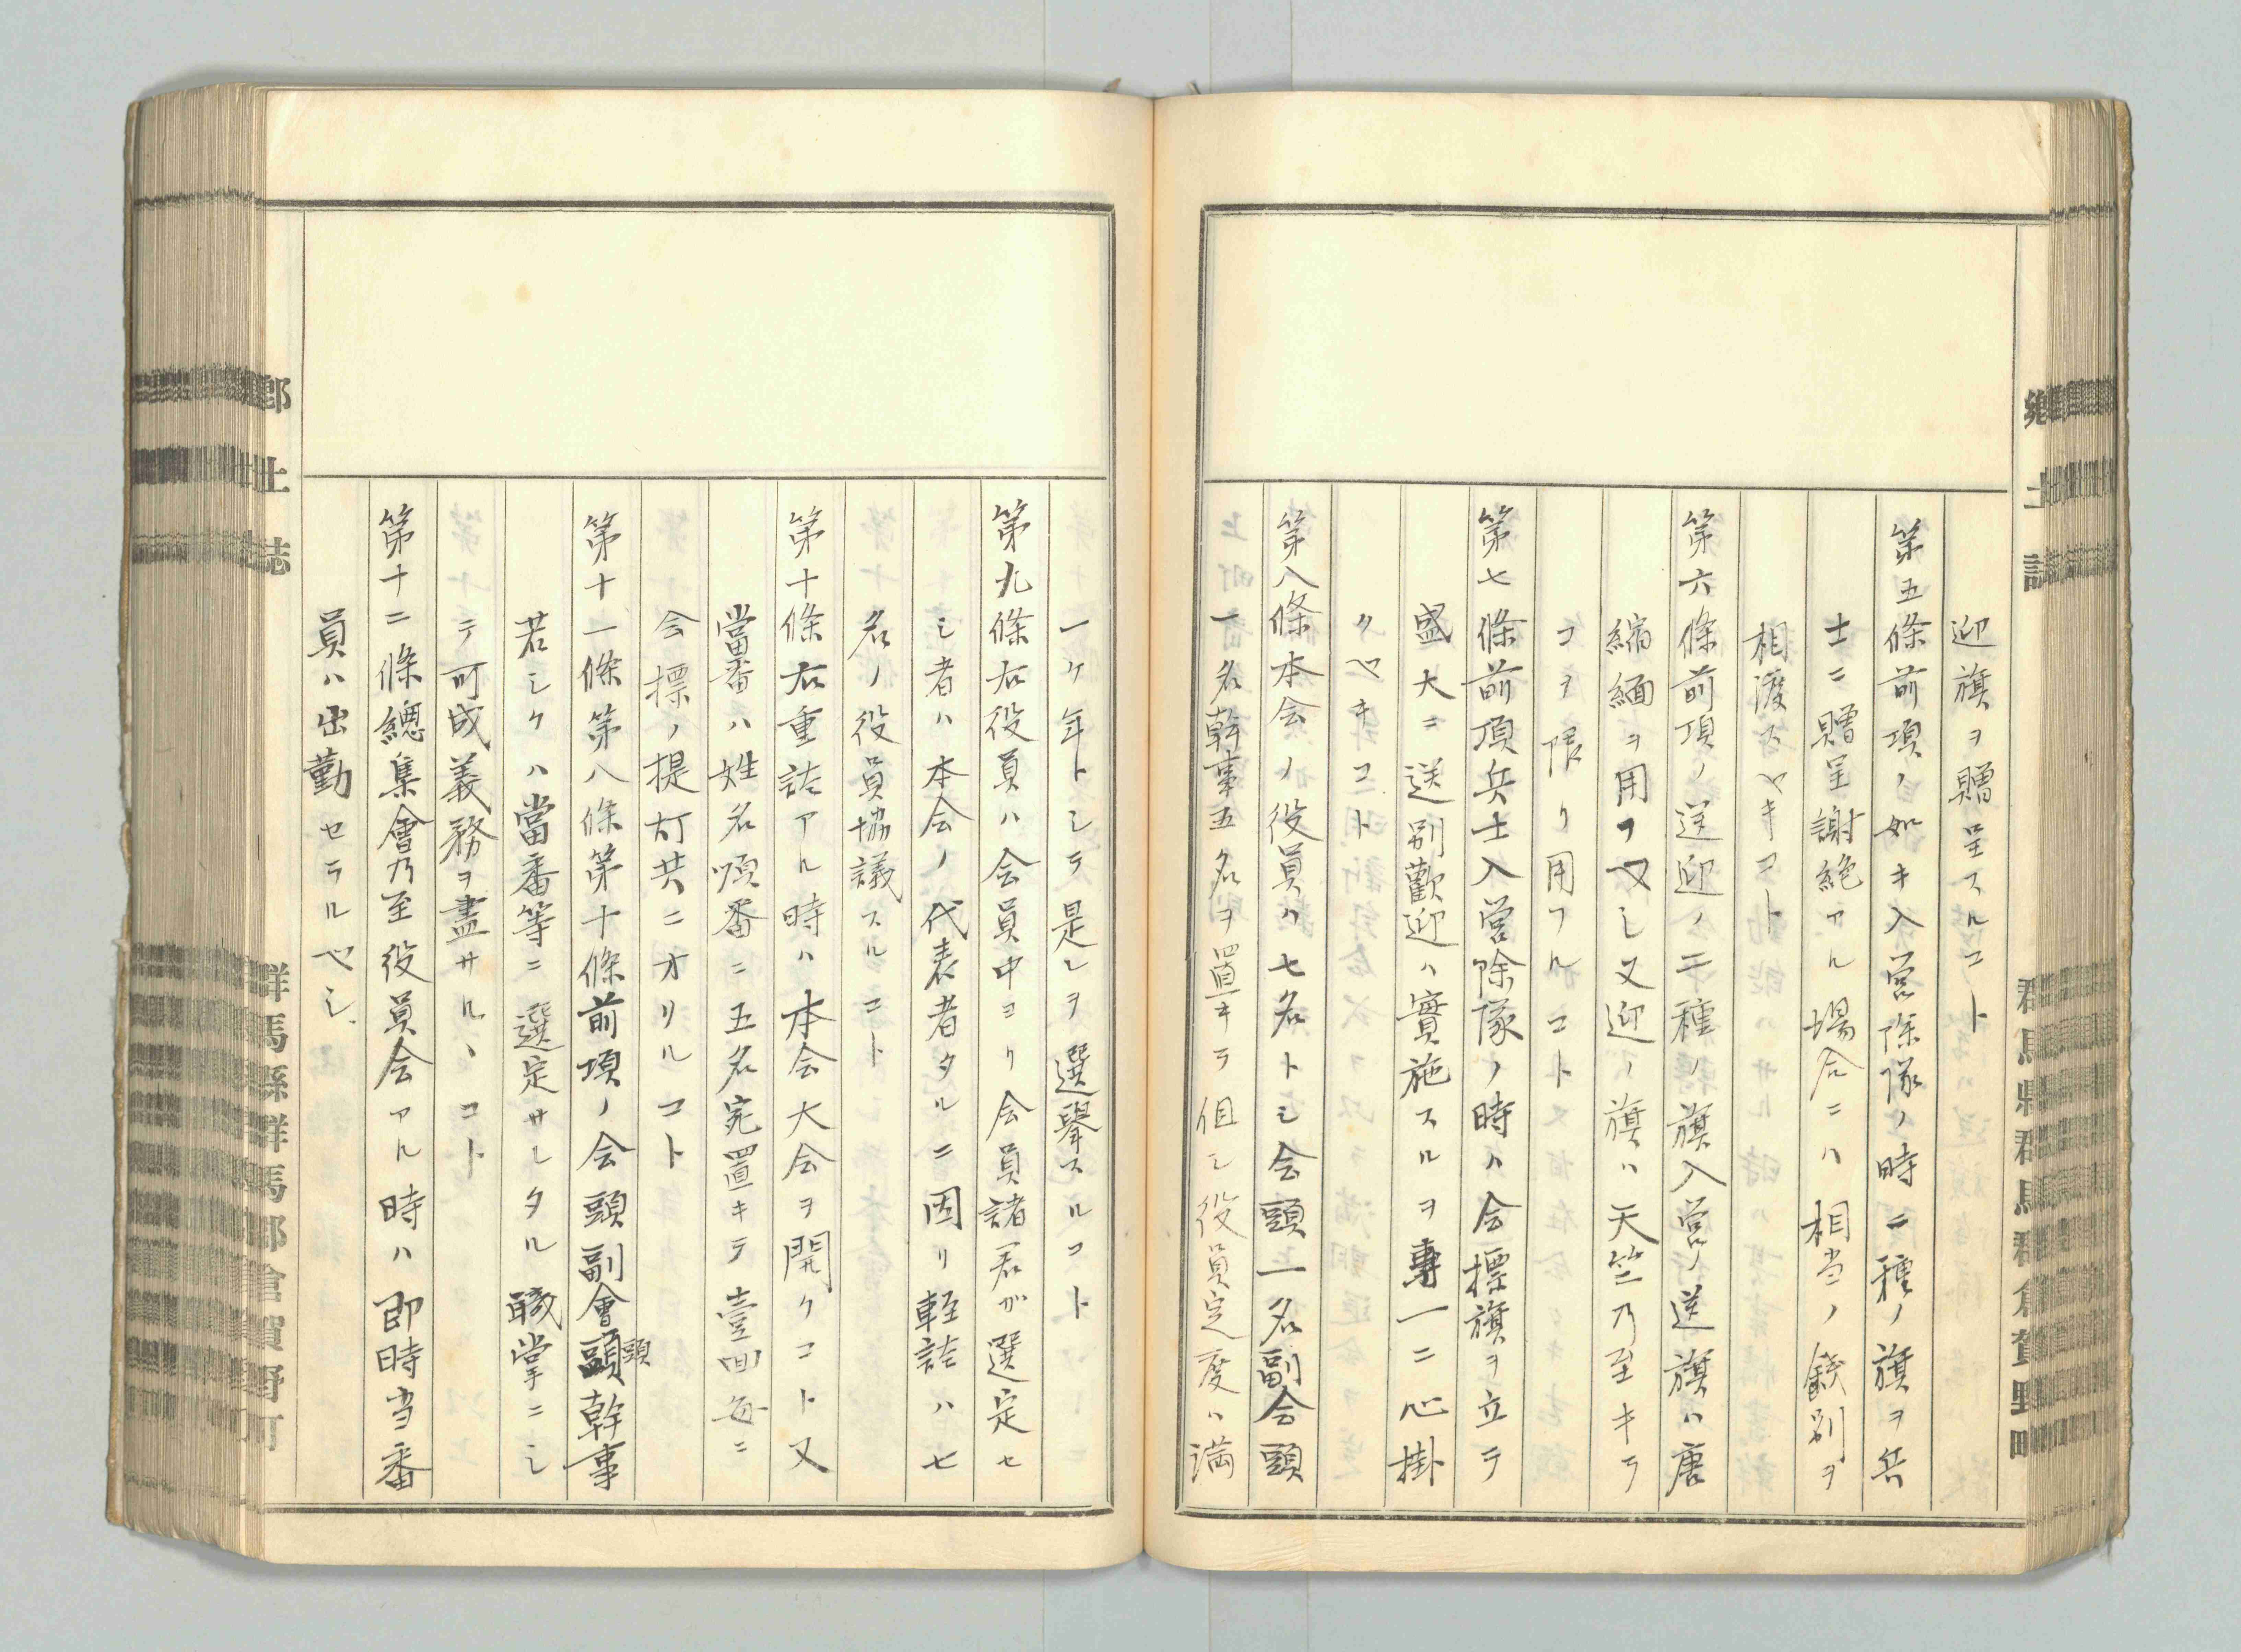 鄉土誌
群馬縣群馬郡倉賀野町
迎旗ヲ贈呈スルコト
第五條前項ノ如キ入営除隊ノ時ニ種ノ旗ヲ兵
士ニ贈呈謝絶アル場合ニハ相当ノ餞別ヲ
相渡スベキコト
第六條前項ノ送迎ノ二種ノ旗入営ノ送旗ハ唐
縮緬ヲ用フ又し又迎ノ旗ハ天竺乃至キラ
コヲ限リ用フルコト
第七條前項兵士入営除隊ノ時ハ会標旗ヲ立テ
盛大ニ送別歡迎ハ實施スルヲ專一ニ心掛
クベキコト
第八條本会ノ役員ハ七名トシ会頭一名副会頭
一名幹事五名ヲ置キテ但シ役員定度ハ満
一ケ年トシテ是レヲ選擧スルコト
第九條右役員ハ会員中ヨリ会員諸君ガ選定セ
シ者ハ本会ノ代表者タルニ因リ軽誌ハ七
名ノ役員協議スルコト
第十條右重誌アル時ハ本会大会ヲ開クコト又
當番ハ姓名順番ニ五名宛置キテ壹回毎ニ
会標ノ提灯共ニオリルコト
第十一條第八條第十條前項ノ会頭副會頭幹事
頭
若シクハ當番等ニ選定サレタル職掌ニシ
テ可成義務ヲ盡サルヽコト
第十二條總集會乃至役員会アル時ハ即時当番
員ハ出勤セラルベシ
鄉土誌
群馬縣群馬郡倉賀野町